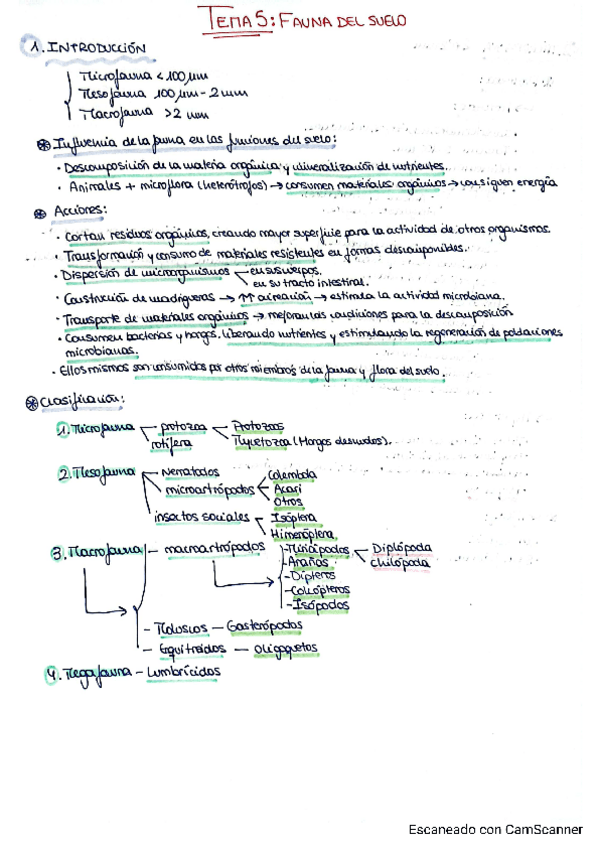 TEMA 5: FAUNA DEL SUELO
1. INTRODUCCIÓN
Microfauna < 100 µm
Mesofauna 100 µm - 2 mm
Macrofauna > 2 mm
Influencia de la fauna en las funciones del suelo:
· Descomposición de la materia orgánica y mineralización de nutrientes.
· Animales + microflora (heterótrofos) → consumen materiales orgánicos → consiguen energía
Acciones:
· Cortan residuos orgánicos, creando mayor superficie para la actividad de otros organismos.
· Transformación y consumo de materiales resistentes en formas descomponibles.
· Dispersión de microorganismos en sus cuerpos.
en su tracto intestinal.
· Construcción de madrigueras → ↑↑ aireación → estimula la actividad microbiana.
· Transporte de materiales orgánicos → mejoran las condiciones para la descomposición
· Consumen bacterias y hongos, liberando nutrientes y estimulando la regeneración de poblaciones
microbianas.
· Ellos mismos son consumidos por otros miembros de la fauna y flora del suelo.
Clasificación:
1. Microfauna protozoa Protozoos
rotífera Myxetozoa (Hongos desnudos).
2. Mesofauna Nematodos Colembola
microartrópodos Acari
Otros
insectos sociales Isóptera
Himenóptera
3. Macrofauna - macroartrópodos - Miriápodos Diplópoda
- Arañas Chilópoda
- Dípteros
- Coleópteros
- Isópodos
- Moluscos - Gasterópodos
- Enquitreidos - Oligoquetos
4. Megafauna - Lumbrícidos
Escaneado con CamScanner